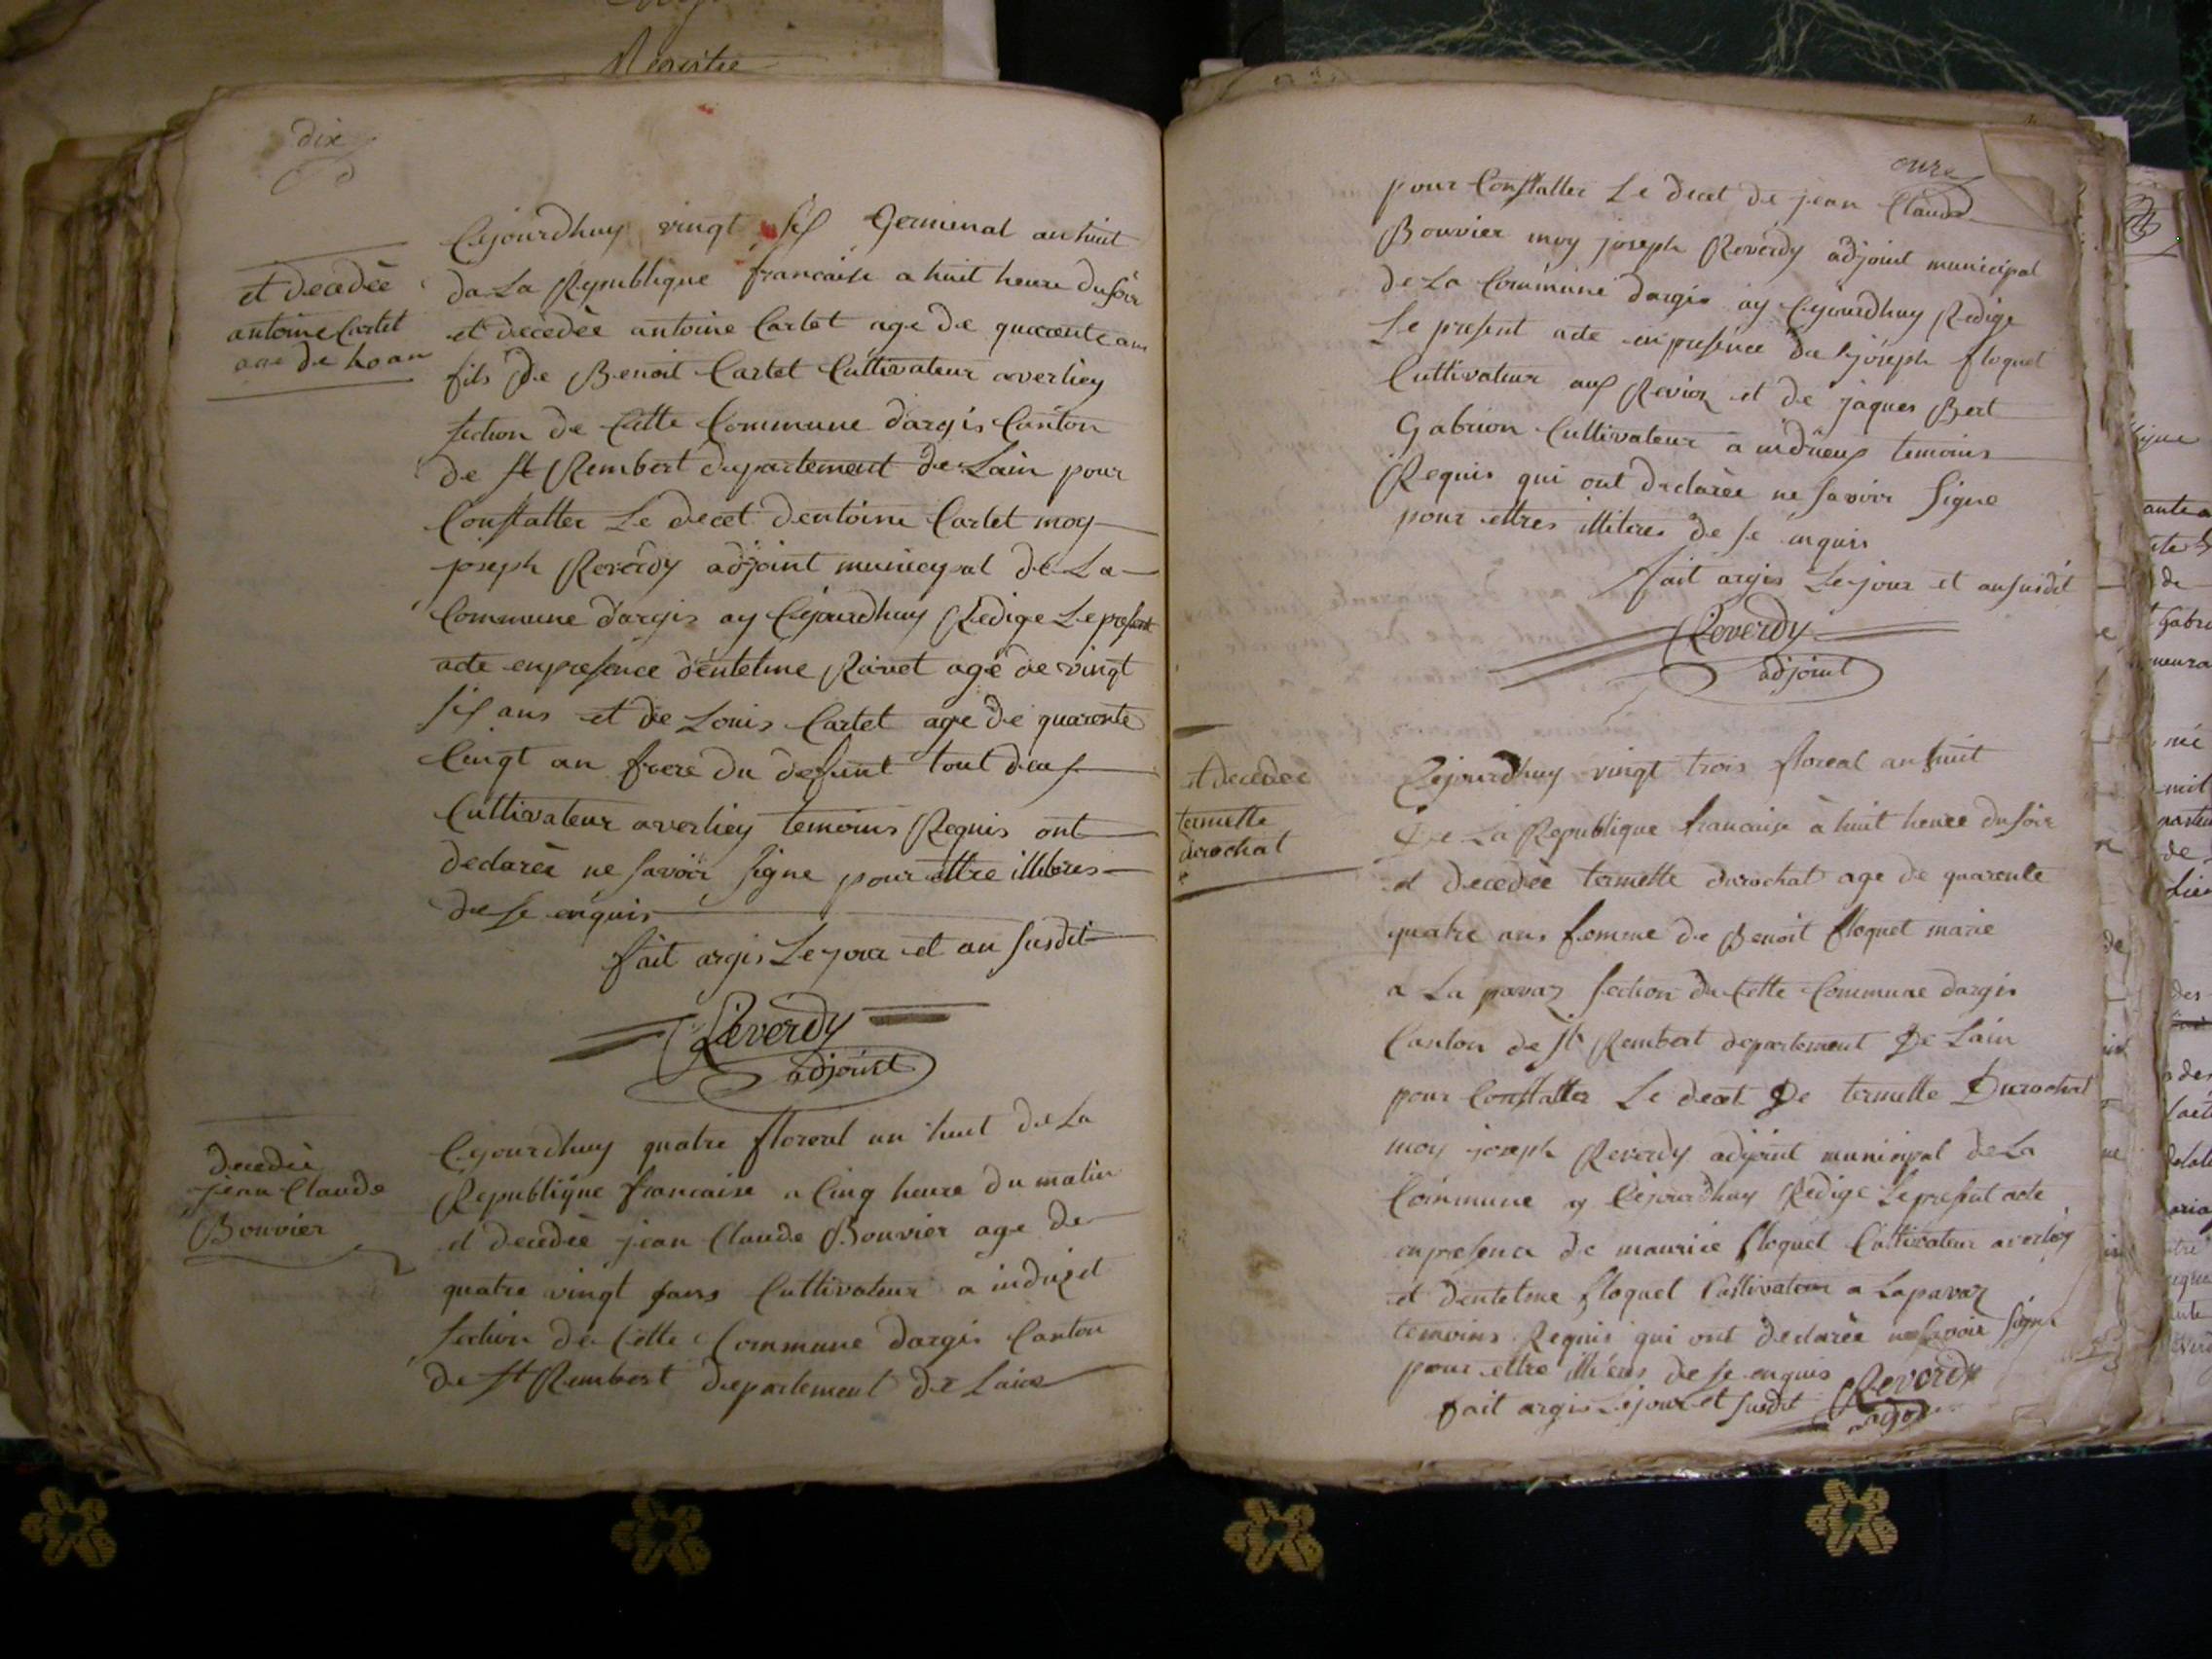 Registre
dix
et decedèe
antoine Cartet
age de 40 an
Cejourdhuy vingt six Germinal an huit
de La Republique francaise a huit heure du soir
et decedèe antoine Cartet age de quarente ans
fils De Benoit Cartet Cultivateur averliey
section de Cette Commune dargis Canton
de st Rembert departement de Lain pour
Constatter Le decet dentoine Cartet moy
joseph Reverdy adjoint municypal de La
Commune dargis ay Cejourdhuy Redige Le present
acte enpresence dentelme Ravet agé de vingt
six ans et de Louis Cartet age de quarente
Cingt an frere du defunt tout deux
Cultivateur averliey temoins Requis ont
declarèe ne savoir signe pour ettre illiteres
de se enquis
fait argis Le jour et an susdit
Reverdy
adjoint
decedèe
jean Claude
Bouvier
Cejourdhuy quatre floreal an huit de La
Republique francaise a Cinq heure du matin
et decedèe jean Claude Bouvier age de
quatre vingt Cultivateur a
section de Cette Commune dargis Canton
de st Rembert departement de Lain
onze
pour Constatter Le decet de jean Claude
Bouvier moy joseph Reverdy adjoint municipal
de La Commune dargis ay Cejourdhuy Redige
Le present acte en presence de joseph floquet
Cultivateur aux et de jaques Bert
Gabrion Cultivateur a temoins
Requis qui ont declarèe ne savoir signe
pour ettres illiteres de se enquis
fait argis Le jour et an susdit
Reverdy
adjoint
et decedee
termette
durochat
Cejourdhuy vingt trois floreal an huit
De La Republique francaise à huit heure du soir
et decedèe termette durochat age de quarente
quatre ans femme de Benoit floquet marie
a La pavaz section de Cette Commune dargis
Canton de st Rembert departement De Lain
pour Constatter Le decet De termette Durochat
moy joseph Reverdy adjoint municipal de La
Commune ay Cejourdhuy Redige Le present acte
enpresence de maurice floquet Cultivateur averliey
et dentelme floquet Cultivateur a Lapavaz
temoins Requis qui ont declarèe ne savoir signe
pour ettre de se enquis
fait argis Le jour et susdit
Reverdy